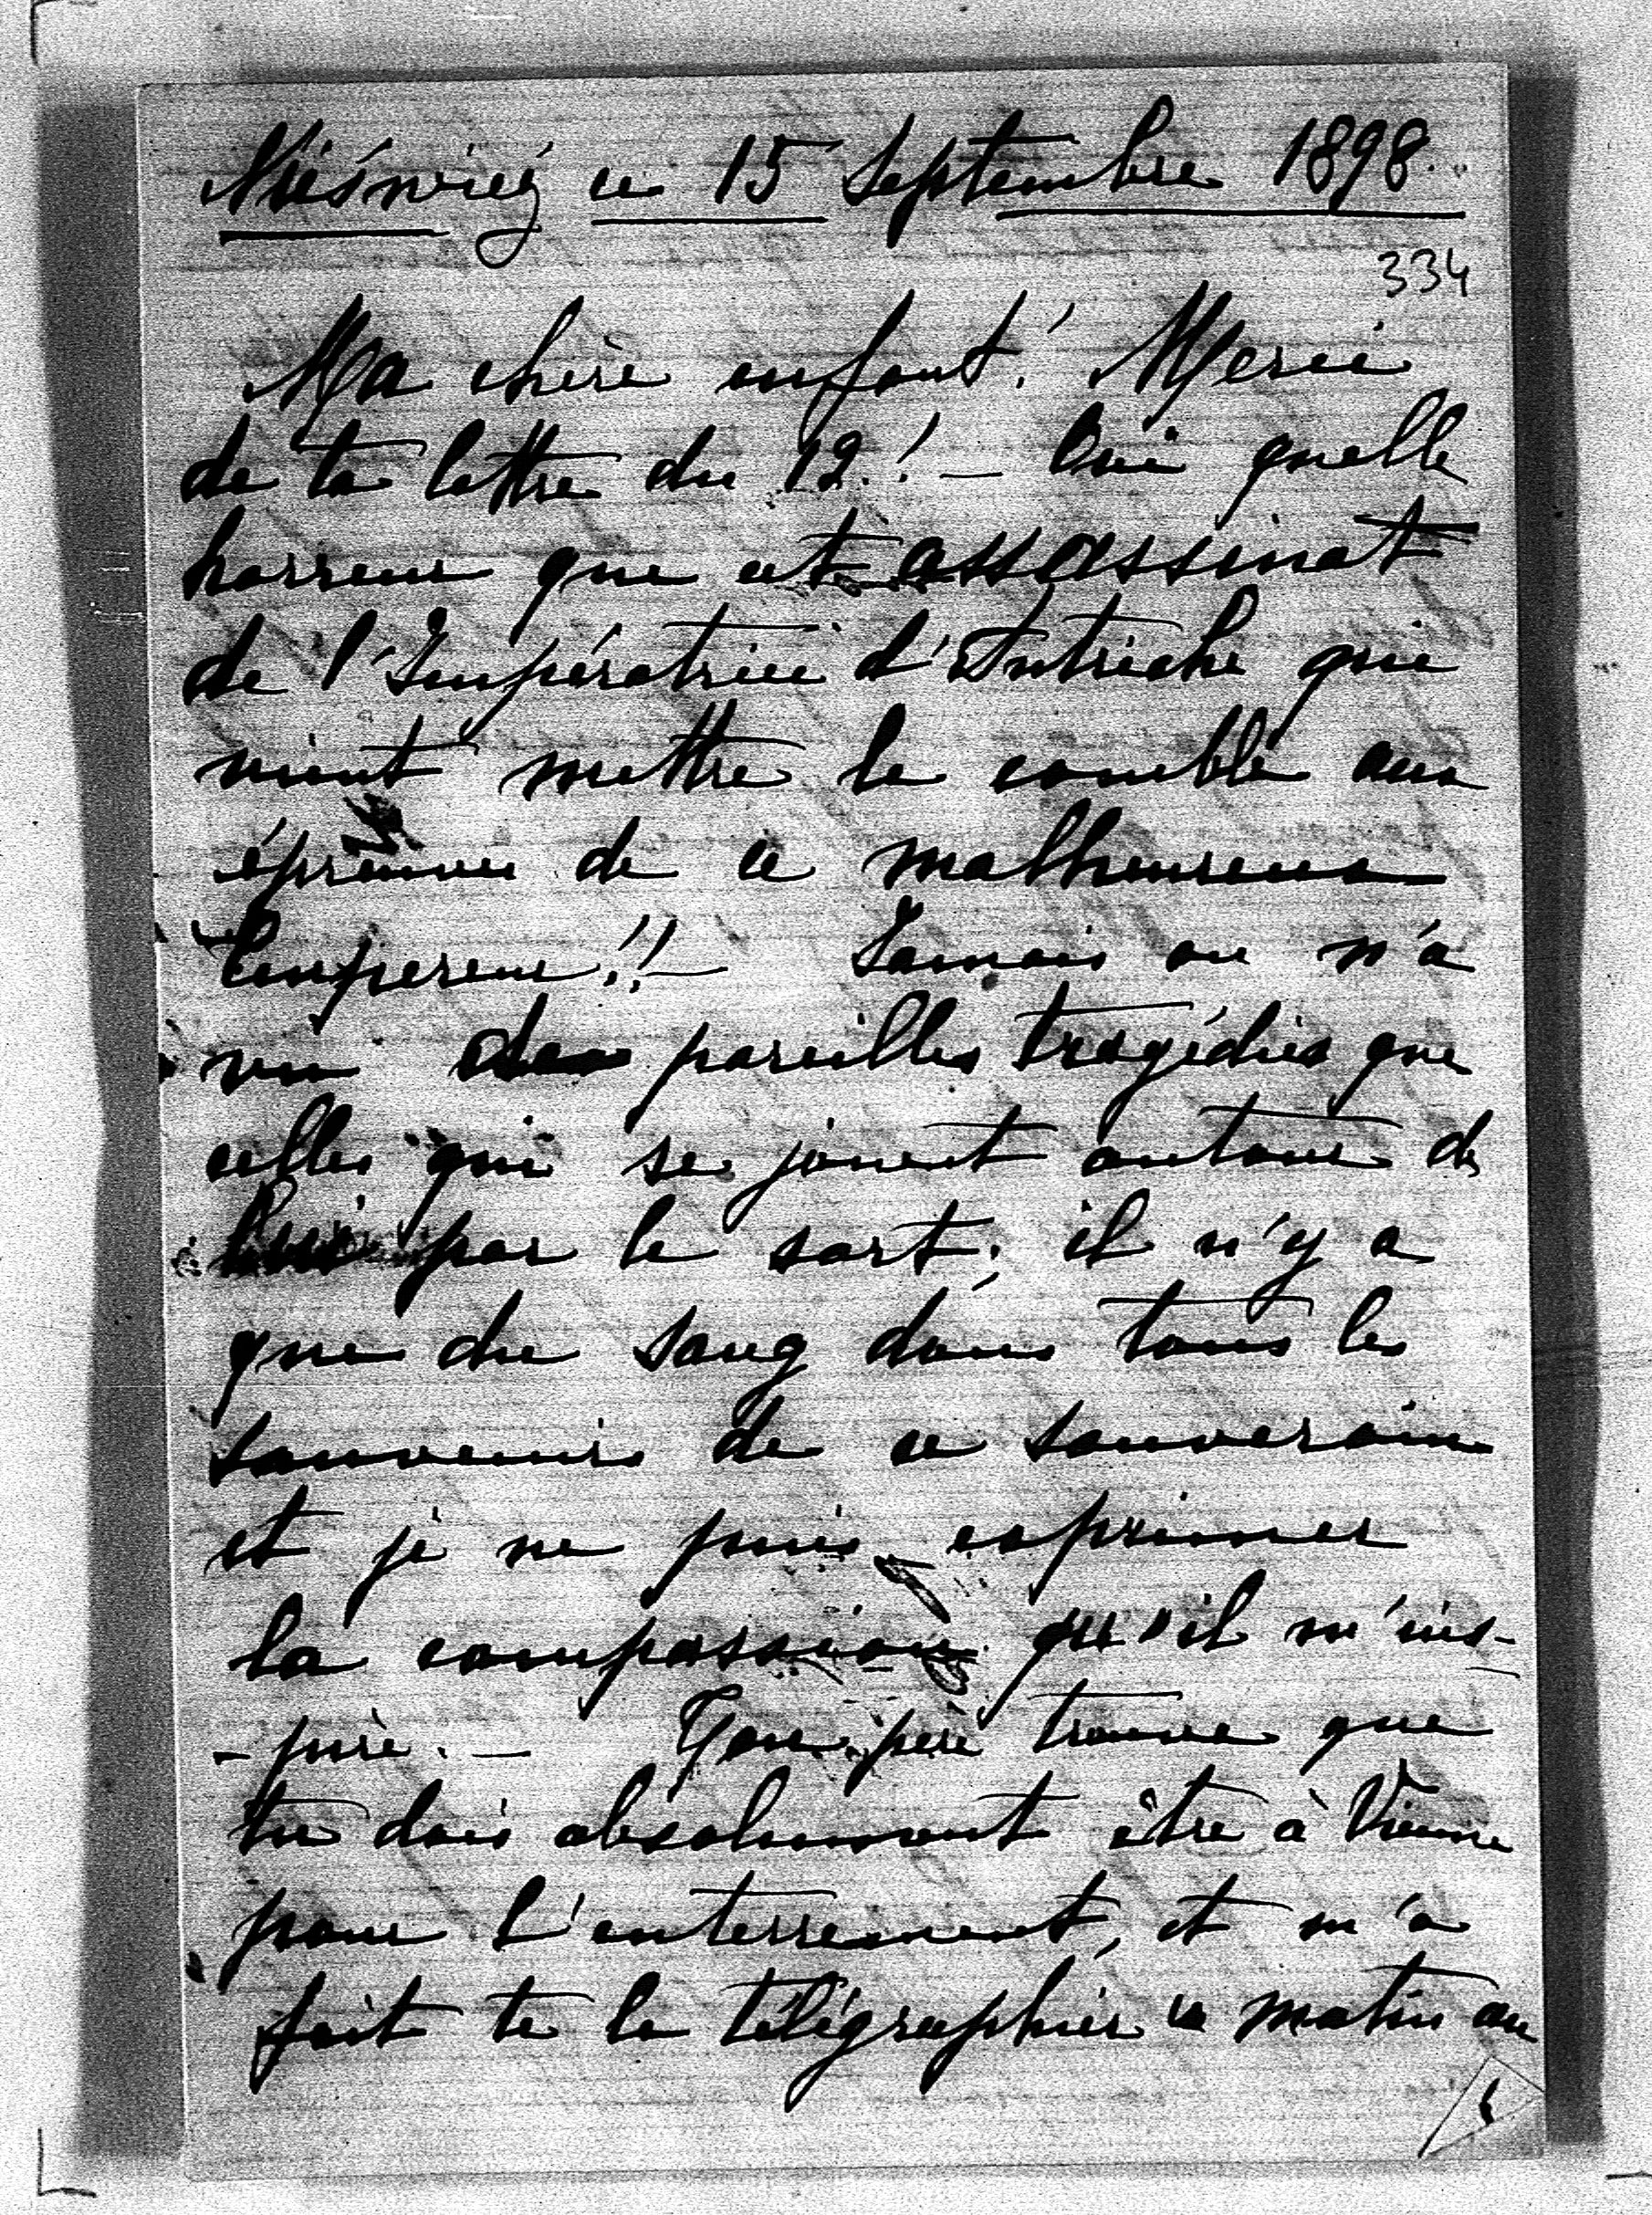 Nieśwież ce 15 Septembre 1898.
334
Ma chère enfant! Merci
de ta lettre du 12.! — Oui quelle
horreur que cet assassinat
de l'Impératrice d'Autriche qui
vient mettre le comble aux
épreuves de ce malheureux
Empereur!! — Jamais on n'a
vu pareilles tragédies que
celles qui se jouent autour de
lui par le sort; il n'y a
que du sang dans tous les
souvenirs de ce souverain
et je ne puis exprimer
la compassion qu'il m'ins-
-pire. — Ton père trouve que
tu dois absolument être à Vienne
pour l'enterrement, et m'a
fait te le télégraphier ce matin au